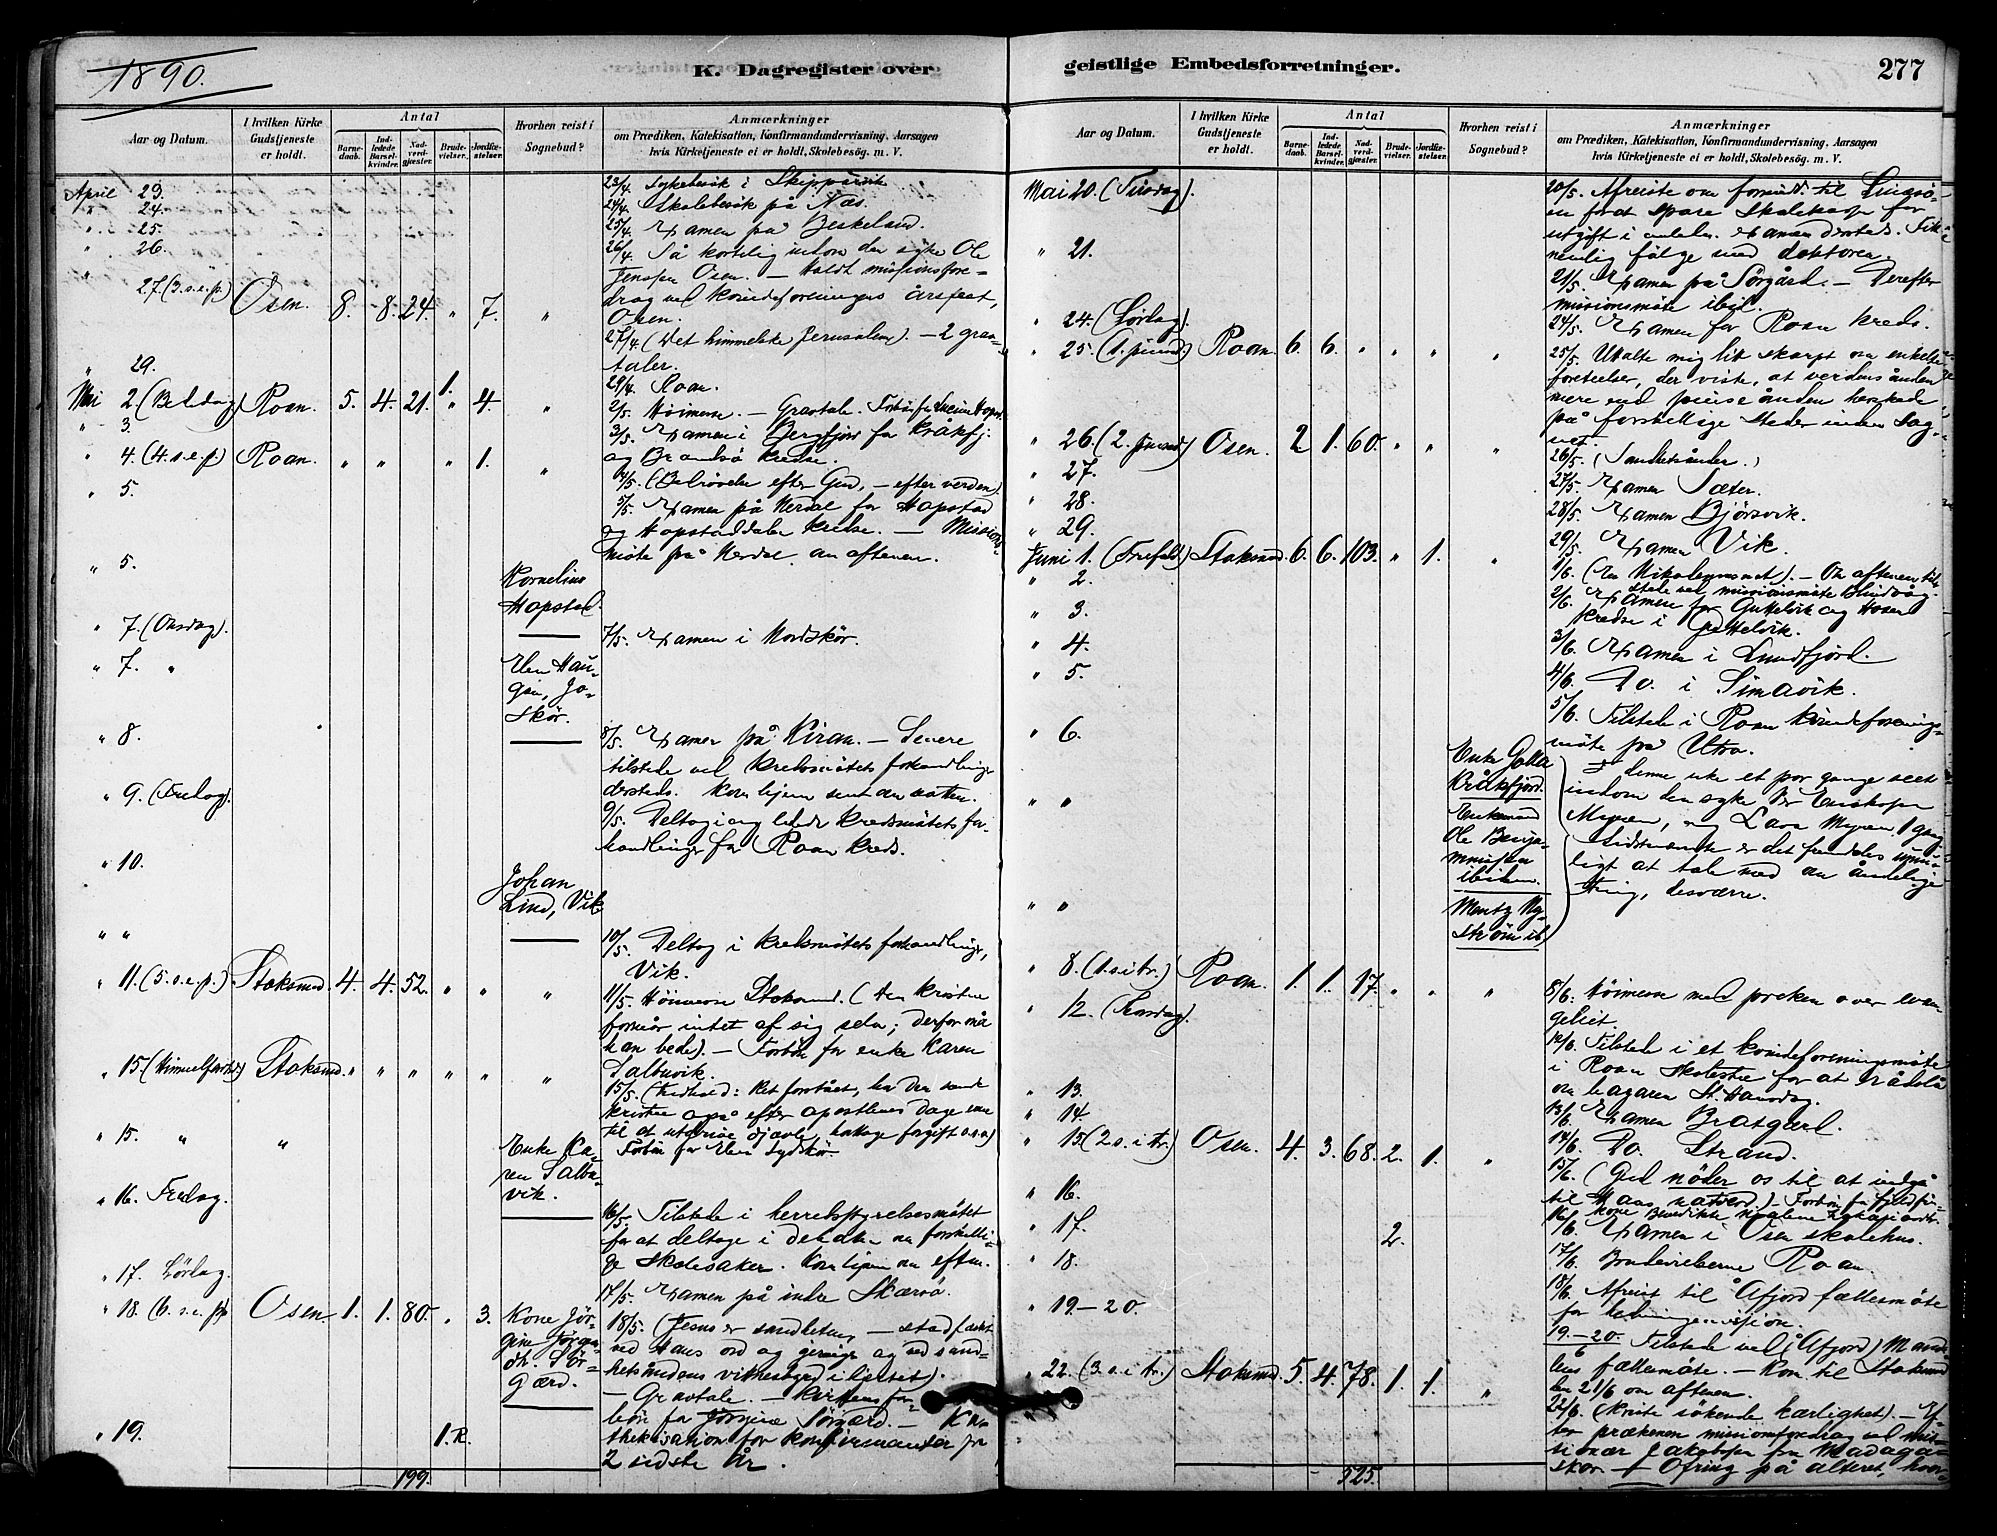 1890.
K. Dagregister over
Aar og Datum.
I hvilken Kirke Gudstjeneste er holdt.
Antal
Barne-daab.
Ind-ledede Barsel-kvinder.
Nad-verd-gjæster.
Brude-vielser.
Jordfæ-stelser.
Hvorhen reist i Sognebud?
Anmærkninger
om Prædiken, Katekisation, Konfirmandundervisning, Aarsagen
hvis Kirketjeneste ei er holdt, Skolebesög. m. V.
April 23. 23/4. Sykebesök i Skippervik
" 24. 24/4. Skolebesök på Næs.
" 25. 25/4. Examen på Beskeland.
" 26. 26/4. Så kortelig indom den syke Ole
Jenssen Osen. — Holdt missionsfore-
" 27. (3. s. e. p.) Osen. 8. 8. 24. " 7. "
drag ved kvindeforeningens årsfest,
Osen.
27/4. (Det himmelske Jerusalem). — 2 grav-
taler.
" 29. 29/4. Roan.
Mai 2. (Bededag) Roan. 5. 4. 21. 1. 4. "
2/5. Höimesse. — Gravtale.
" 3. 3/5. Examen i Bergfjord for Kråkfj.
og Brandsö kredse.
" 4. (4. s. e. p.) Roan. " " " 1. "
4/5. (Bedrövelse efter Gud, — efter verden).
" 5. 5/5. Examen på Nerdal for Hopstad
og Hopstaddalen kredse. — Missions-
möte på Nerdal om aftenen.
" 5. Kornelius
Hopstad.
" 7. (Onsdag). 7/5. Examen i Nordskör.
" 7. " Elen Hau-
gen, Jo-
skör.
" 8. 8/5. Examen på Kiran. — Senere
tilstede ved kredsmötets forhandlinger
dersteds. Kom hjem sent om natten.
" 9. (Fredag). 9/5. Deltog i og ledede kredsmötets for-
handlinger for Roan kreds.
" 10. Johan
Lind, Vik
" " 10/5. Deltog i kredsmötets forhandlinger,
Vik.
" 11. (5. s. e. p.) Stoksund. 4. 4. 52. " " "
11/5. Höimesse Stoksund. (Den kristne
formår intet af sig selv; derfor må
han bede). — Forbön for enke Karen
Salbuvik.
" 15. (Himmelfartsd.) Stoksund. " " " " " "
15/5. (Indhold: Ret forstået, har den sande
kristne også efter apostlenes dage evne
til at utdrive djævle, hattage forgift o.s.v.)
" 15. " " Enke Ka-
ren Salbu-
vik.
Forbön for Elen Sydskör.
" 16. Fredag. 16/5. Tilstede i herredsstyrelsesmötet
for at deltage i debatten om forskelli-
ge skolesaker. Kom hjem om eftm.
" 17. Lördag. 17/5. Examen på indre Skjærvö.
" 18. (6. s. e. p.) Osen. 1. 1. 80. " 3.
Kone Jör-
gine Jörgens-
dtr. Sör-
gærd.
18/5. (Jesus er sandheten, — stadfæstet
ved Hans ord og gjerninger og ved sand-
hetsåndens vitnesbyrd i hjertet).
— Gravtale. — Kirkens for-
bön for Jörgine Sörgærd. — Ka-
thekisation for konfirmanter for
2 sidste År.
" 19. 1. R.
199.
geistlige Embedsforretninger.
277
Aar og Datum.
I hvilken Kirke Gudstjeneste er holdt.
Antal
Barne-daab.
Ind-ledede Barsel-kvinder.
Nad-verd-gjæster.
Brude-vielser.
Jordfæ-stelser.
Hvorhen reist i Sognebud?
Anmærkninger
om Prædiken, Katekisation, Konfirmandundervisning, Aarsagen
hvis Kirketjeneste ei er holdt, Skolebesög. m. V.
Mai 20. (Tirsdag). 20/5. Afreiste om formidd. til Linesö-
en for at spare Skolekassen for
utgift i anledn. examen dersteds. Fik
nemlig fölge med doktoren.
" 21. 21/5. Examen på Sörgård. — Derefter
missionsmöte ibid.
" 24. (Lördag). 24/5. Examen for Roan kreds.
" 25. (1. pinsed.) Roan. 6. 6. " " " "
25/5. Uttalte mig lit skarpt om enkelte
foreteelser, der viste, at verdensånden
mere end pinseånden herskede
på forskellige steder inden Sog-
net.
" 26. (2. pinsed.) Osen. 2 1. 60. " " "
26/5. (Sandhetsånden.)
" 27. 27/5. Examen Sæter.
" 28. 28/5. Examen Björsvik.
" 29. 29/5. Examen Vik.
Juni 1. (Trefold.) Stoksund. 6. 6. 103. " 1. "
1/6. (Om Nikodemus). — Om aftenen til-
stede ved missionsmöte Lindvåg.
" 2. 2/6. Examen for Guttelvik og Hosen
kredse i Guttelvik.
" 3. 3/6. Examen i Sundfjord.
" 4. 4/6. Do. i Simavik.
" 5. 5/6. Tilstede i Roan kvindeforenings-
möte på Utro.
" 6. Enke
Kråkfjord.
I denne uke et par gange seet
indom den syke Per Eriksen
" " Enkemand
Ole Benja-
minsen
ibidem.
Myren, og Lars Myren 1 gang
Sidstnævnte er det fremdeles umu-
ligt at tale med om åndelige
ting, desværre.
" " Mentz Ny-
ström ib.
" 8. (1. s. i tr.) Roan. 1. 1. 17. " " "
8/6. Höimesse med preken over evan-
geliet.
" 12. (Torsdag). 12/6. Tilstede i et kvindeforeningsmöte
i Roan skolestue for at rådslå
om bazaren St. Hansdag.
" 13. 13/6. Examen Bratgærd.
" 14 14/6. Do. Strand.
" 15 (2 s. i tr.) Osen. 4. 3. 68. 2. 1. "
15/6. (Gud nöder os til at indgå
til Hans natverd.)
" 16. 16/6. Examen i Osen skolehus.
" 17. 2. 17/6. Brudevielserne Roan.
" 18. 18/6. Afreist til Åfjord fællesmöte
for hedningemission.
" 19. — 20. 19. — 20/6. Tilstede ved (Åfjord) Mand-
lens fællesmöte. — Kom til Stoksund
den 21/6 om aftenen.
" 22. (3. s. i tr.) Stoksund. 5. 4. 78. 1. 1. "
22/6. (Kristi sökende kærlighet). — Ef-
ter prækenen missionsforedrag ved mis-
sionær Jakobsen fra Madaga-
skar. — Ofring på alteret, hvor-
525.